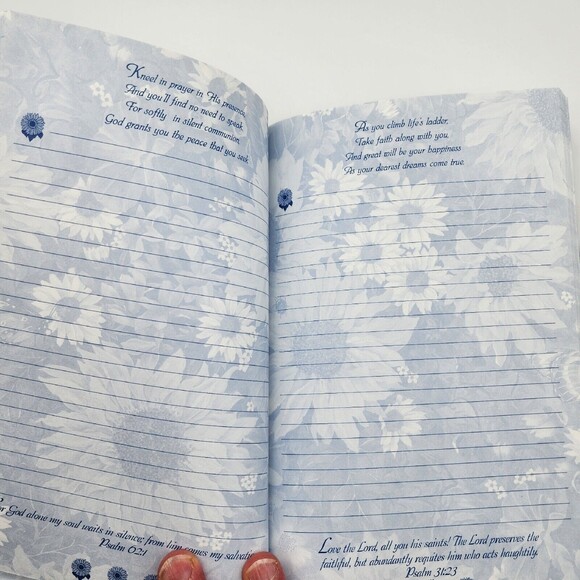 Kneel in prayer in His presence,
And you'll find no need to speak.
For softly in silent communion
God grants you the peace that you seek.
For God alone my soul waits in silence; from him comes my salvation.
Psalm 62:1
As you climb life's ladder,
Take faith along with you,
And great will be your happiness
As your dearest dreams come true.
Love the Lord, all you his saints! The Lord preserves the
faithful, but abundantly requites him who acts haughtily.
Psalm 31:23